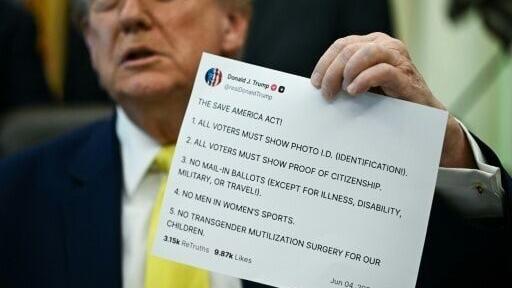 Donald J. Trump
@realDonaldTrump
THE SAVE AMERICA ACT!
1. ALL VOTERS MUST SHOW PHOTO I.D. (IDENTIFICATION!).
2. ALL VOTERS MUST SHOW PROOF OF CITIZENSHIP.
3. NO MAIL-IN BALLOTS (EXCEPT FOR ILLNESS, DISABILITY,
MILITARY, OR TRAVEL!).
4. NO MEN IN WOMEN'S SPORTS.
5. NO TRANSGENDER MUTILIZATION SURGERY FOR OUR
CHILDREN.
3.15k ReTruths 9.87k Likes
Jun 04,